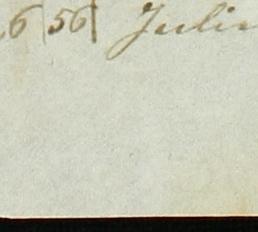 6 56 Julin